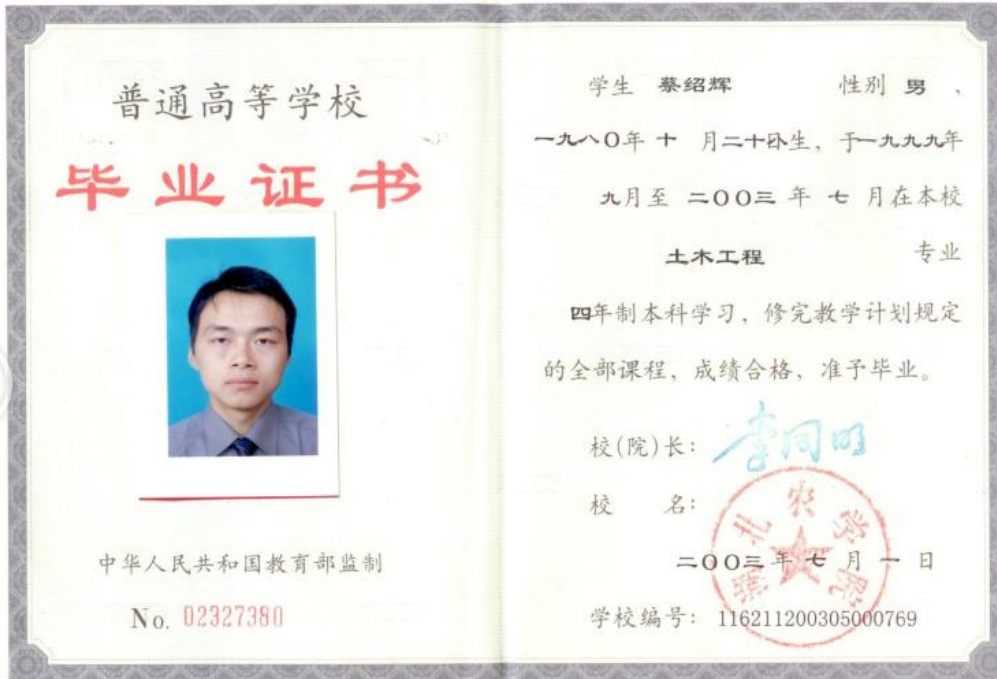 普通高等学校
毕业证书
中华人民共和国教育部监制
No. 02327380
学生 蔡绍辉 性别 男,
一九八〇年 十 月二十 生, 于一九九九年
九月至 二〇〇三 年 七 月在本校
土木工程 专业
四年制本科学习, 修完教学计划规定
的全部课程, 成绩合格, 准予毕业。
校(院)长: 李同明
校 名:
湖北农学院
二〇〇三年 七 月 一 日
学校编号: 116211200305000769